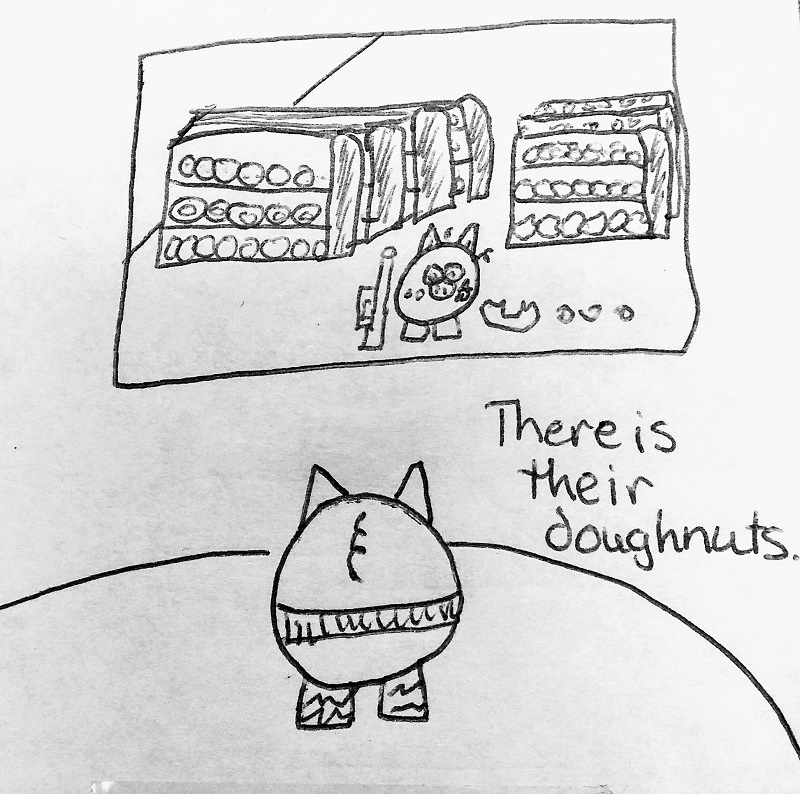 There is
their
doughnuts.